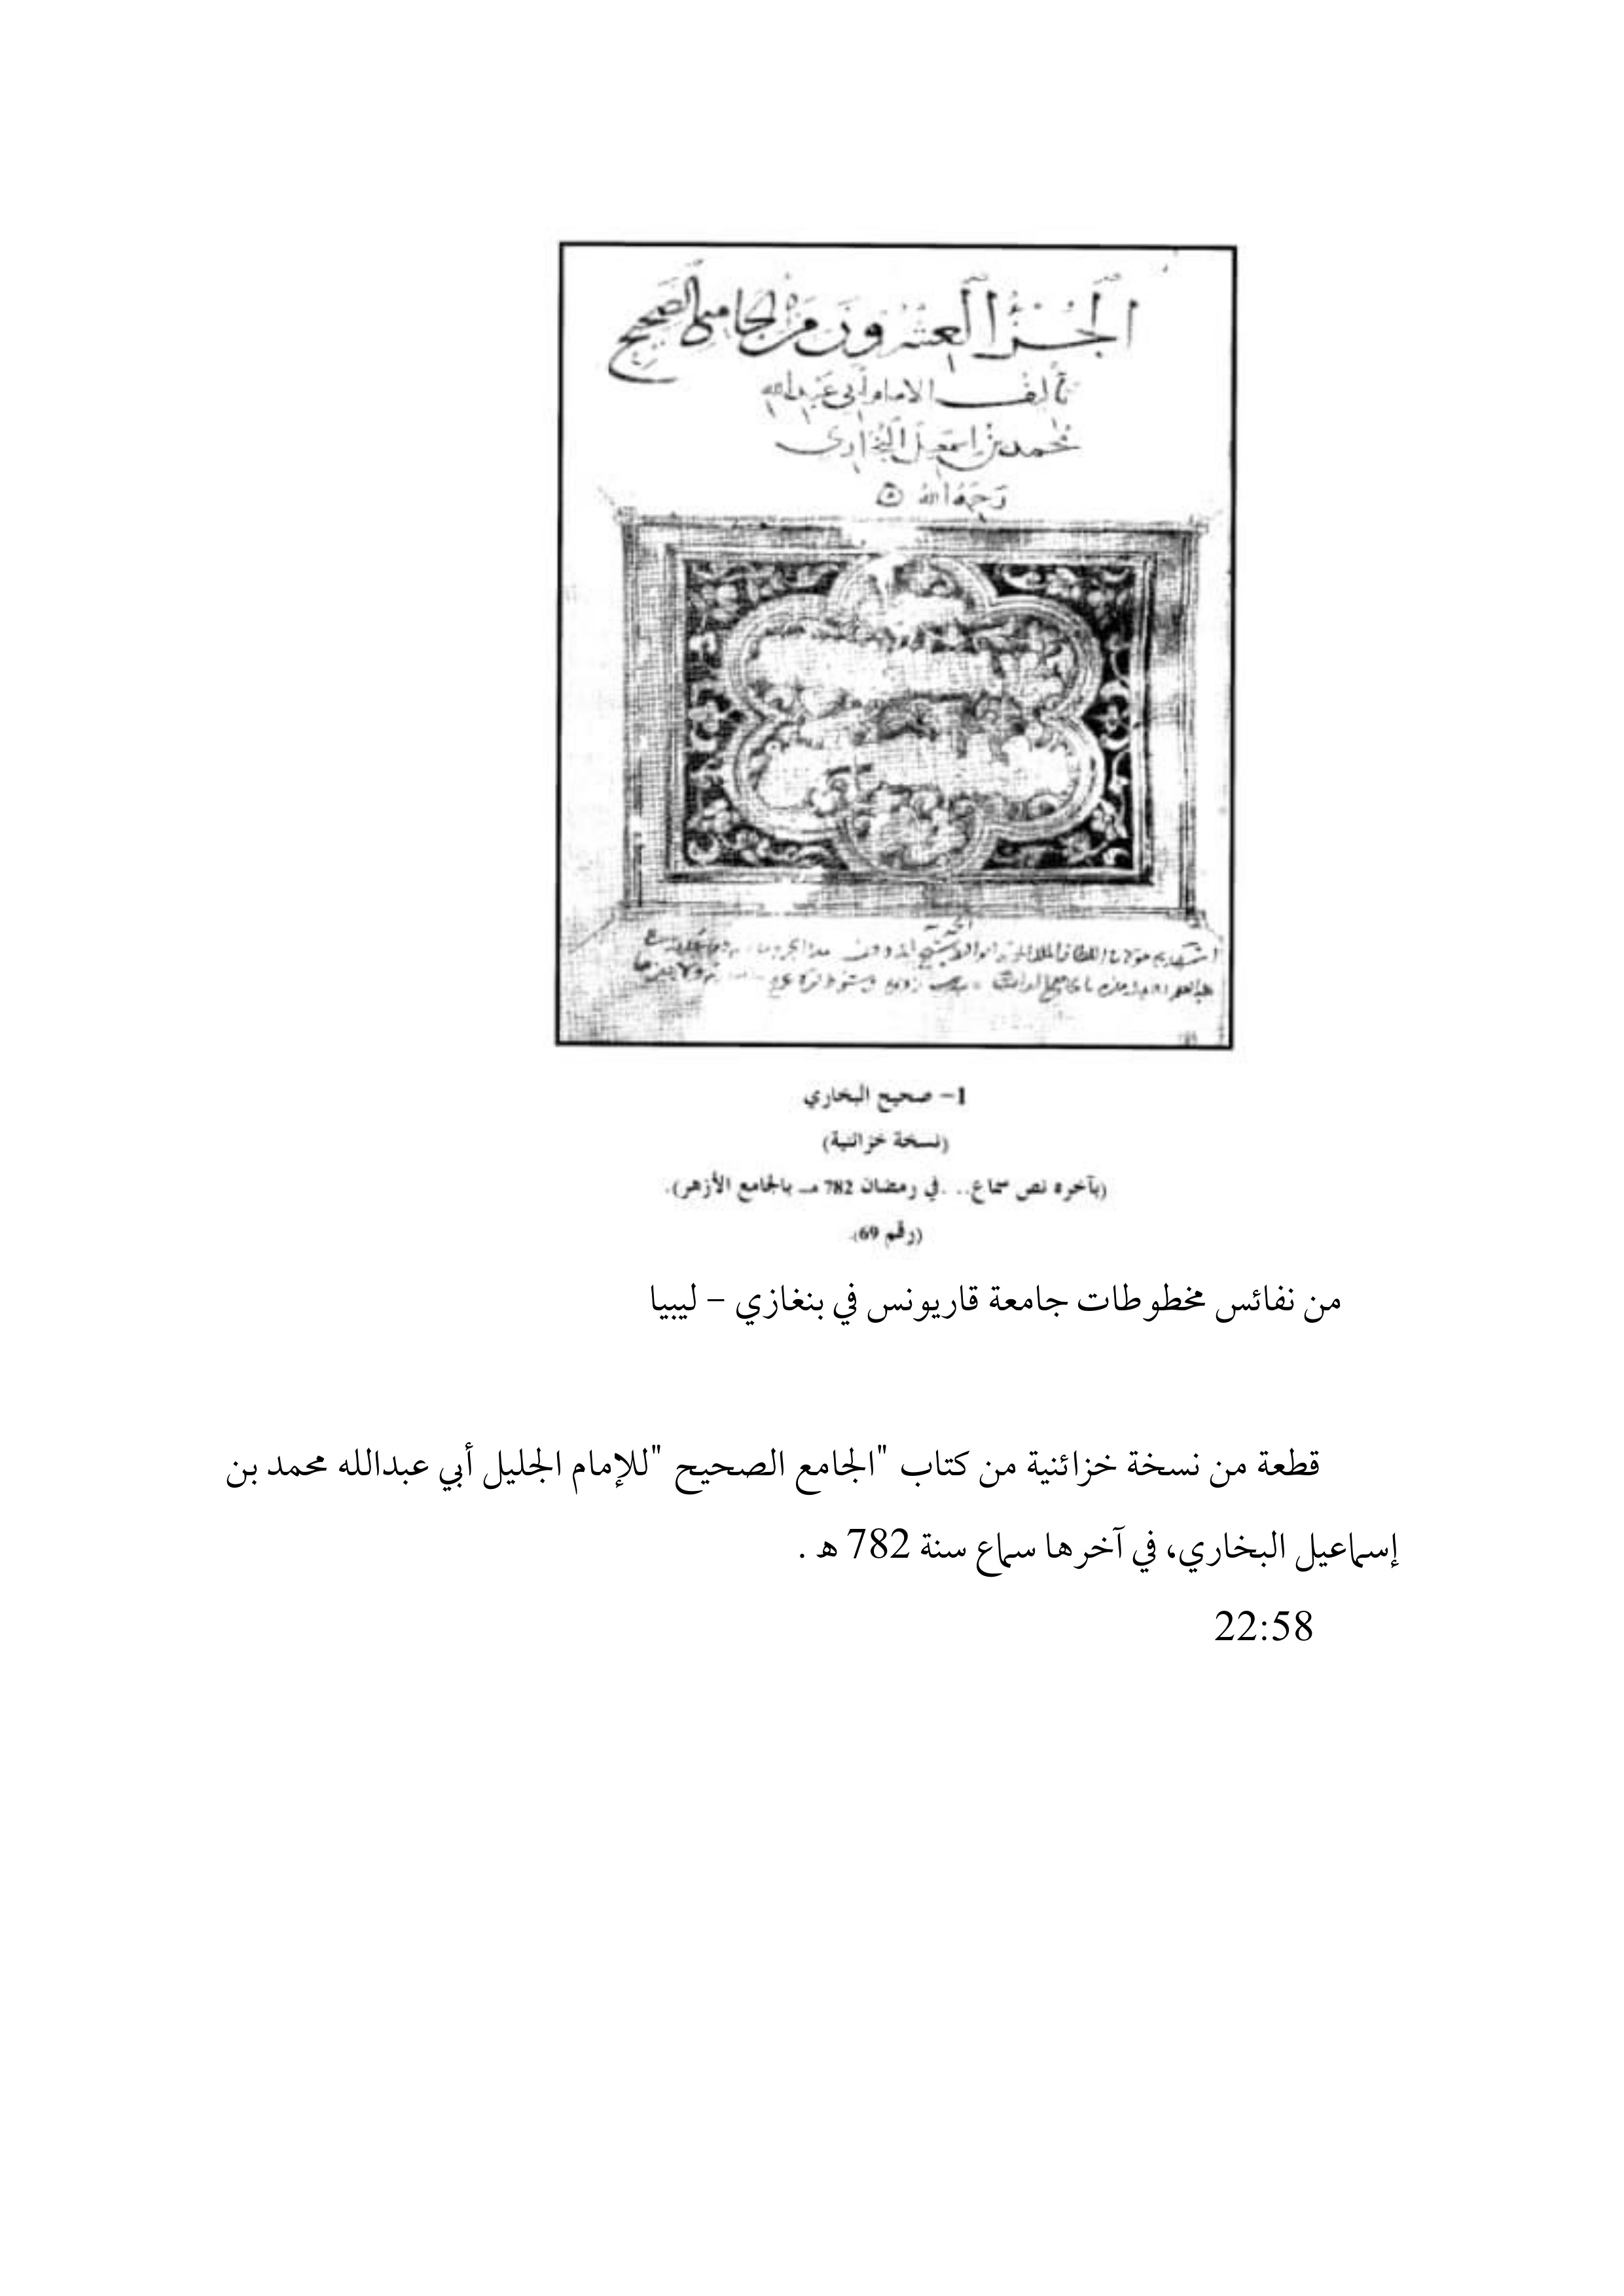 الجُزْءُ العشرُونَ مِنَ الجَامِعِ الصَّحِيحِ
تأليف الامام أبي عَبْدِ الله
محمد بن اسمعيل البُخَاري
رَحِمَهُ الله
الحمد لله
اشهد مولانا السلطان الملك المؤيد ابو النصر شيخ
1– صحيح البخاري
(نسخة خزائنية)
(بآخره نص سماع. . .في رمضان 782 هـ بالجامع الأزهر).
(رقم 69).
من نفائس مخطوطات جامعة قاريونس في بنغازي – ليبيا
قطعة من نسخة خزائنية من كتاب "الجامع الصحيح "للإمام الجليل أبي عبدالله محمد بن
إسماعيل البخاري، في آخرها سماع سنة 782 ه .
22:58